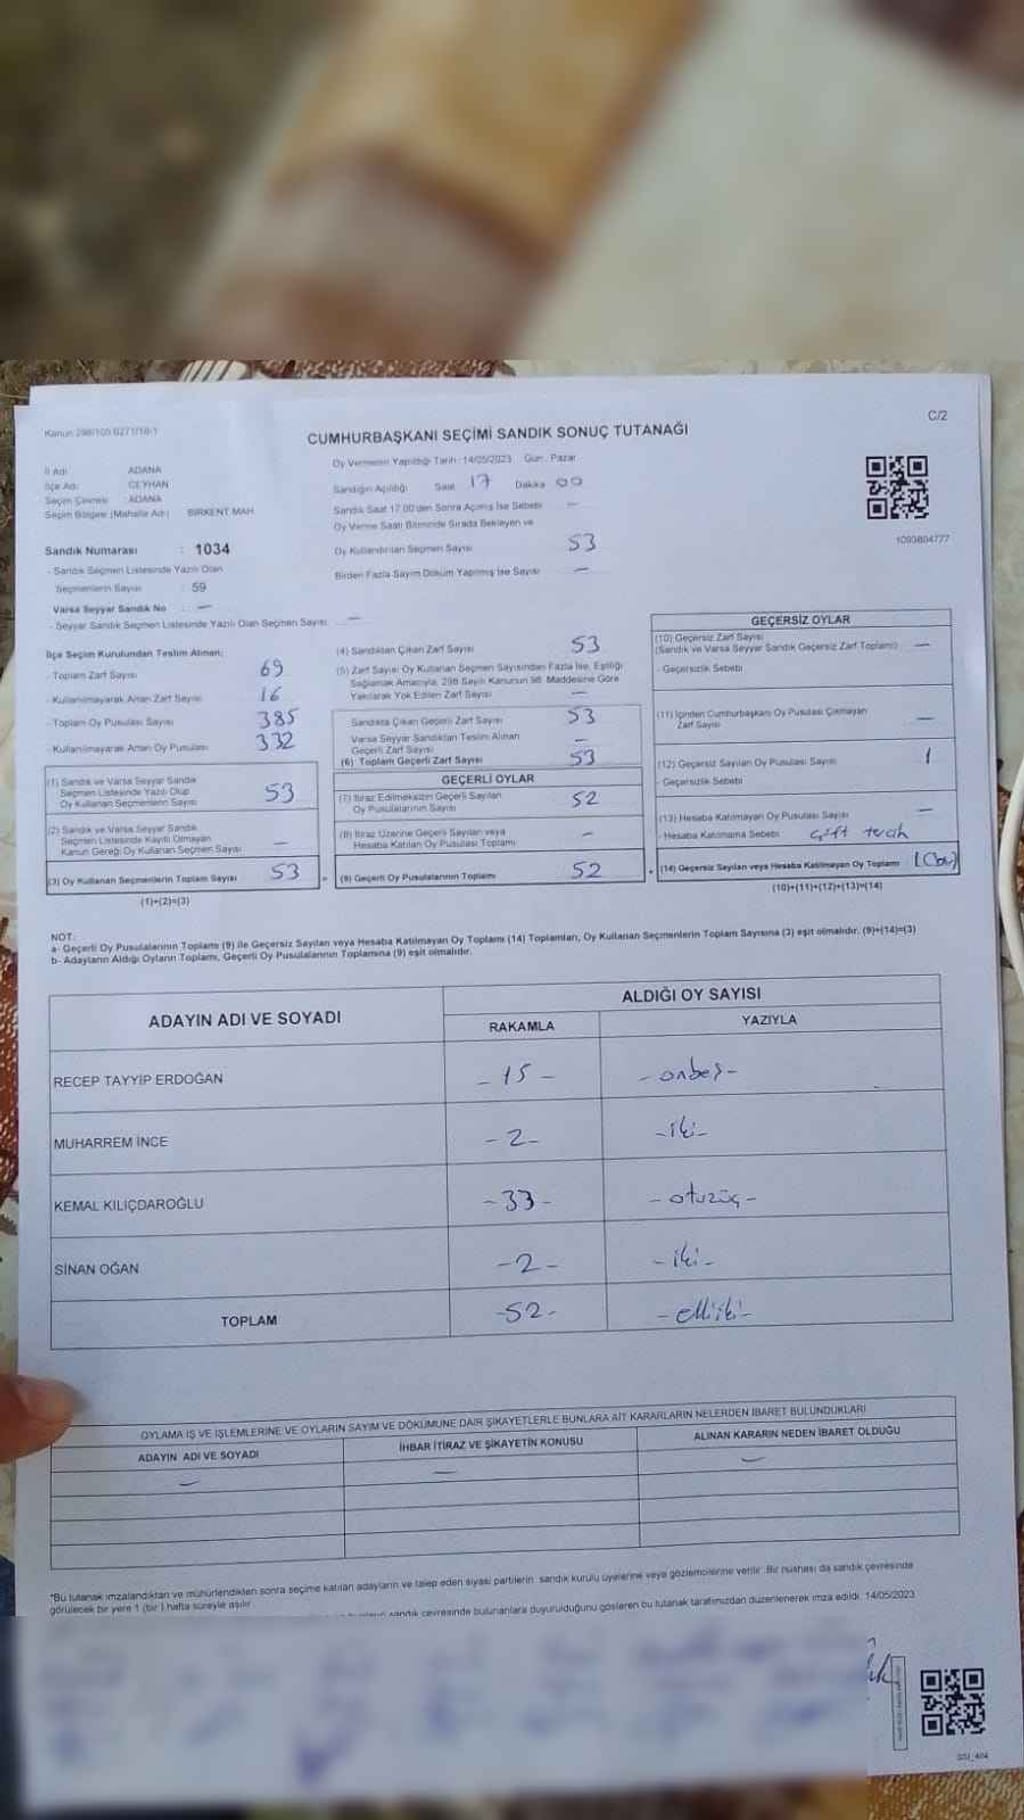 C/2
Kanun 298/105 6271/18-1
CUMHURBAŞKANI SEÇİMİ SANDIK SONUÇ TUTANAĞI
İl Adı ADANA
İlçe Adı CEYHAN
Seçim Çevresi ADANA
Seçim Bölgesi (Mahalle Adı) BİRKENT MAH.
Oy Vermenin Yapıldığı Tarih : 14/05/2023 Gün : Pazar
Sandığın Açıldığı Saat 17 Dakika 00
Sandık Saat 17.00'den Sonra Açılmış İse Sebebi —
Oy Verme Saati Bitiminde Sırada Bekleyen ve
Oy Kullandırılan Seçmen Sayısı 53
Birden Fazla Sayım Döküm Yapılmış İse Sayısı —
1093804777
Sandık Numarası : 1034
- Sandık Seçmen Listesinde Yazılı Olan
Seçmenlerin Sayısı : 59
Varsa Seyyar Sandık No : —
- Seyyar Sandık Seçmen Listesinde Yazılı Olan Seçmen Sayısı : —
İlçe Seçim Kurulundan Teslim Alınan;
- Toplam Zarf Sayısı 69
- Kullanılmayarak Artan Zarf Sayısı 16
- Toplam Oy Pusulası Sayısı 385
- Kullanılmayarak Artan Oy Pusulası 332
(1) Sandık ve Varsa Seyyar Sandık
Seçmen Listesinde Yazılı Olup
Oy Kullanan Seçmenlerin Sayısı 53
(2) Sandık ve Varsa Seyyar Sandık
Seçmen Listesinde Kayıtlı Olmayan
Kanun Gereği Oy Kullanan Seçmen Sayısı —
(3) Oy Kullanan Seçmenlerin Toplam Sayısı 53
(1)+(2)=(3)
(4) Sandıktan Çıkan Zarf Sayısı 53
(5) Zarf Sayısı Oy Kullanan Seçmen Sayısından Fazla İse, Eşitliği
Sağlamak Amacıyla, 298 Sayılı Kanunun 98. Maddesine Göre
Yakılarak Yok Edilen Zarf Sayısı —
Sandıkta Çıkan Geçerli Zarf Sayısı 53
Varsa Seyyar Sandıktan Teslim Alınan
Geçerli Zarf Sayısı —
(6) Toplam Geçerli Zarf Sayısı 53
GEÇERLİ OYLAR
(7) İtiraz Edilmeksizin Geçerli Sayılan
Oy Pusulalarının Sayısı 52
(8) İtiraz Üzerine Geçerli Sayılan veya
Hesaba Katılan Oy Pusulası Toplamı —
(9) Geçerli Oy Pusulalarının Toplamı 52
GEÇERSİZ OYLAR
(10) Geçersiz Zarf Sayısı
(Sandık ve Varsa Seyyar Sandık Geçersiz Zarf Toplamı) —
- Geçersizlik Sebebi
(11) İçinden Cumhurbaşkanı Oy Pusulası Çıkmayan
Zarf Sayısı —
(12) Geçersiz Sayılan Oy Pusulası Sayısı 1
- Geçersizlik Sebebi
(13) Hesaba Katılmayan Oy Pusulası Sayısı —
- Hesaba Katılmama Sebebi Çift tercih
(14) Geçersiz Sayılan veya Hesaba Katılmayan Oy Toplamı 1 (bir)
(10)+(11)+(12)+(13)=(14)
NOT:
a- Geçerli Oy Pusulalarının Toplamı (9) ile Geçersiz Sayılan veya Hesaba Katılmayan Oy Toplamı (14) Toplamları, Oy Kullanan Seçmenlerin Toplam Sayısına (3) eşit olmalıdır. (9)+(14)=(3)
b- Adayların Aldığı Oyların Toplamı, Geçerli Oy Pusulalarının Toplamına (9) eşit olmalıdır.
ADAYIN ADI VE SOYADI ALDIĞI OY SAYISI
RAKAMLA YAZIYLA
RECEP TAYYİP ERDOĞAN - 15 - - onbeş -
MUHARREM İNCE - 2 - - iki -
KEMAL KILIÇDAROĞLU - 33 - - otuzüç -
SİNAN OĞAN - 2 - - iki -
TOPLAM - 52 - - elliiki -
OYLAMA İŞ VE İŞLEMLERİNE VE OYLARIN SAYIM VE DÖKÜMÜNE DAİR ŞİKAYETLERLE BUNLARA AİT KARARLARIN NELERDEN İBARET BULUNDUKLARI
ADAYIN ADI VE SOYADI İHBAR İTİRAZ VE ŞİKAYETİN KONUSU ALINAN KARARIN NEDEN İBARET OLDUĞU
— — —
*Bu tutanak imzalandıktan ve mühürlendikten sonra seçime katılan adayların ve talep eden siyasi partilerin sandık kurulu üyelerine veya gözlemcilerine verilir. Bir nüshası da sandık çevresinde
görülecek bir yere 1 (bir) hafta süreyle asılır.
sandık çevresinde bulunanlara duyurulduğunu gösteren bu tutanak tarafımızdan düzenlenerek imza edildi. 14/05/2023